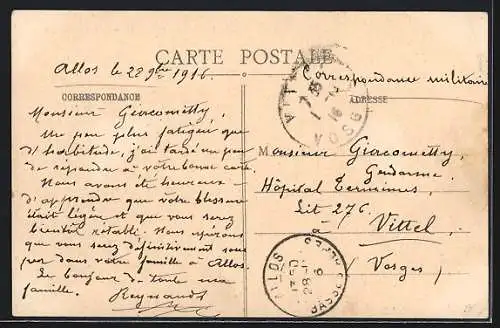 CARTE POSTALE
Allos le 22 9bre 1916.
Correspondance militaire
CORRESPONDANCE
ADRESSE
Monsieur Giacometty,
Un peu plus fatigué que
d'habitude, j'ai tardé un peu
de répondre à votre bonne carte.
Nous avons été heureux
d'apprendre que votre blessure
était légère et que vous serez
bientôt rétabli. Nous espérons
que vous serez définitivement sous
peu dans votre famille à Allos.
Le bonjour de toute ma
famille.
Reynaud
VITTEL
1-12
16
VOSGES
Monsieur Giacometty,
Gendarme
Hôpital Terminus,
Lit 276.
à
Vittel
(Vosges)
ALLOS
28-11
16
BASSES ALPES